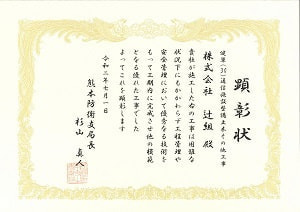 顕彰状
健軍(30)通信施設整備土木その他工事
株式会社 辻組 殿
貴社が施工した右の工事は困難な
状況下にもかかわらず工程管理や
安全管理において優秀なる技術を
もって工期内に完成させ他の模範
となる優れた工事でした
よってこれを顕彰します
令和三年七月一日
熊本防衛支局長
杉山 真人